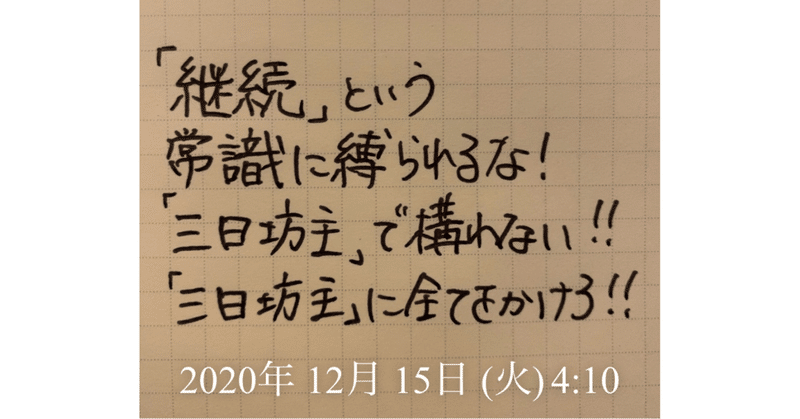 「継続」という
常識に縛られるな!
「三日坊主」で構れない!!
「三日坊主」に全てをかけろ!!
2020年 12月 15日 (火) 4:10